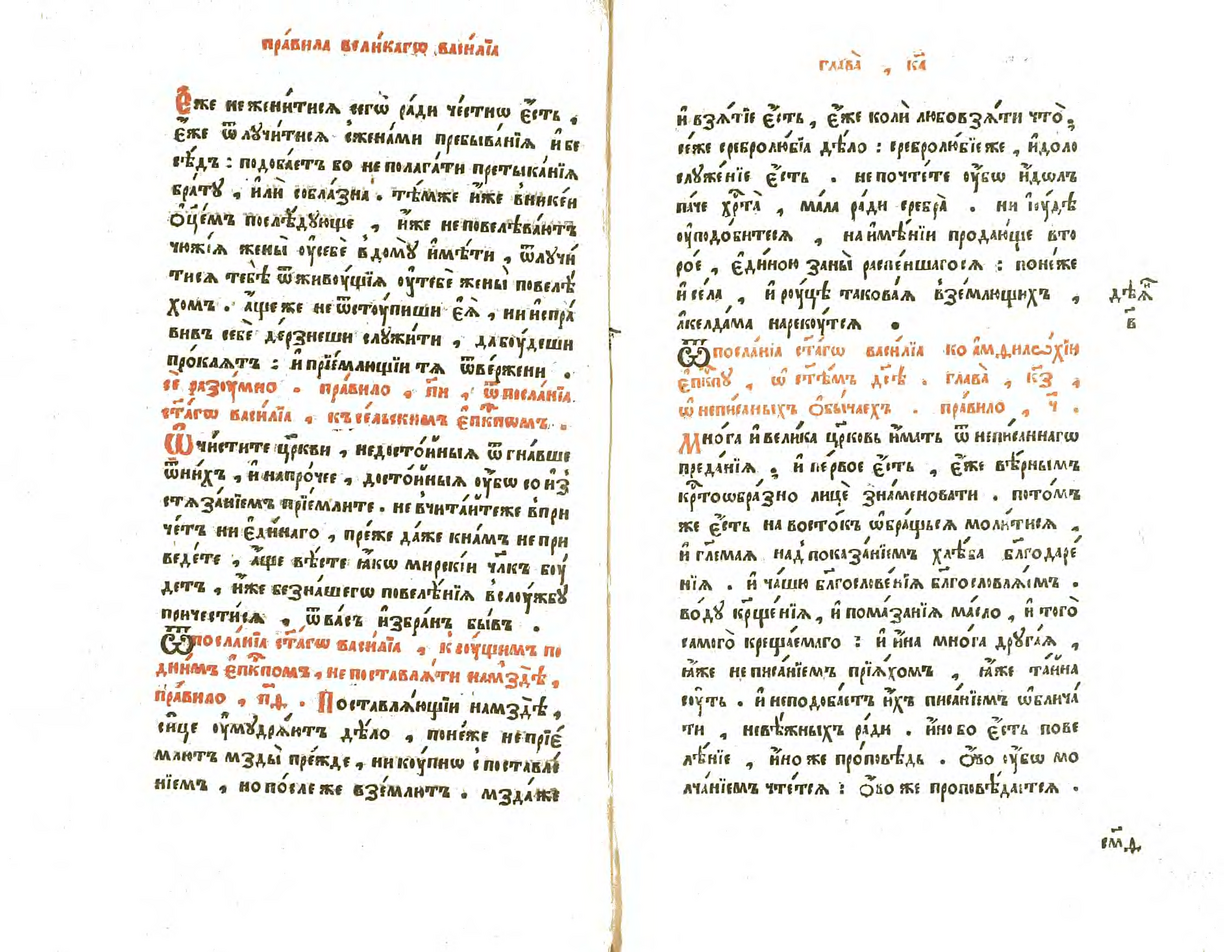 пра́вила вели́кагѡ васи́лїа
Е҆́же не жени́тися сегѡ̀ ра́ди че́стнѡ є҆́сть ,
є҆́же ѿлꙋчи́тися сжена́ми пребыва́нїѧ и҆ бе
сѣ́дъ : подоба́етъ бо не полага́ти претыка́нїѧ
бра́тꙋ , и҆лѝ собла́зна . тѣ́мже и҆́же вникеи
о҆ц҃е́мъ послѣ́дꙋюще , и҆́же не повелѣва́ютъ
чюжі́ѧ жены̀ ᲂу҆себѐ вдомꙋ̀ и҆мѣ́ти , ѿлꙋчи́
тися тебѣ̀ ѿживꙋ́щїѧ ᲂу҆тебѐ жены̀ повелѣ́
хомъ . а҆́ще же не ѿстꙋ́пиши є҆ѧ̀ , ни и҆спра́
вивъ себѐ де́рзнеши слꙋжи́ти , да бꙋ́деши
про́клѧтъ : и҆ прїе́млющїи тѧ ѿве́ржени .
сѐ разꙋ́мно . пра́вило , п҃и , ѿ посла́нїѧ
ст҃а́гѡ васи́лїа , къ се́льскимъ є҆пⷭ҇кпѡмъ .
Ѡ҆чи́стите цр҃кви , недосто́йныѧ ѿгна́вше
ѿни́хъ , и҆ напро́чее , досто́йныѧ ᲂу҆́бѡ со и҆з̾
стѧза́нїемъ прїе́млите . не вчита́йтеже впри
че́тъ ни є҆ди́наго , пре́же да́же кна́мъ не при
веде́те , а҆́ще вѣ́сте ꙗ҆́кѡ мирскі́и чл҃къ бꙋ́
детъ , и҆́же без̾на́шегѡ повелѣ́нїѧ вслꙋ́жбꙋ
причести́ся , ѿ ва́съ и҆збра́нъ бы́въ .
Ѿ посла́нїѧ ст҃а́гѡ васи́лїа , к сꙋ́щимъ по
дни́мъ є҆пⷭ҇кпомъ , не поставлѧ́ти на мздѣ̀ ,
пра́вило , п҃ѳ . Поставлѧ́ющїи на мздѣ̀ ,
си́це ᲂу҆мꙋдрѧ́ютъ дѣ́ло , поне́же не прїе́
млютъ мзды̀ пре́жде , ни кꙋ́пнѡ с поставле́
нїемъ , но по́слѣ же взе́млютъ . мзда́ же
глава̀ , к҃а
и҆ взѧ́тїе є҆́сть , є҆́же коли̇̀ любо взѧ́ти что̀ ;
се́же сребролю́бїѧ дѣ́ло : сребролю́бїе же , и҆доло
слꙋже́нїе є҆́сть . не почте́те ᲂу҆́бѡ и҆́дѡлъ
па́че хрⷭ҇та̀ , ма́ла ра́ди сребра̀ . ни і҆ю́дѣ
ᲂу҆подо́битеся , на и҆мѣ́нїи продаю́ще вто
ро́е , є҆ди́ною за ны̀ распе́ншагося : поне́же
и҆ се́ла , и҆ рꙋ́цѣ такова́ѧ взе́млющихъ ,
а҆келда́ма нарекꙋ́тся .
Ѿ посла́нїѧ ст҃а́гѡ васи́лїа ко а҆мфило́хїю
є҆пⷭ҇кпꙋ , ѡ҆ ст҃ѣ́мъ дс҃ѣ . глава̀ , к҃з ,
ѡ҆ непи́саныхъ ѻ҆бы́чаехъ . пра́вило , ч҃ .
Мно́га и҆ вели́ка цр҃ковь и҆́мать ѿ непи́саннагѡ
преда́нїѧ ; и҆ пе́рвое є҆́сть , є҆́же вѣ́рнымъ
крⷭ҇тоѡбра́зно лицѐ зна́меновати . пото́мъ
же є҆́сть на восто́къ ѡ҆бра́щься моли́тися ,
и҆ гл҃емаѧ над̾ показа́нїемъ хлѣ́ба бл҃годаре́
нїѧ . и҆ ча́шю бл҃гослове́нїѧ бл҃гословлѧ́емъ .
во́дꙋ кр҃ще́нїѧ , и҆ пома́занїѧ ма́сло , и҆ того̀
самого̀ креща́емаго : и҆ и҆́на мно́га дрꙋга́ѧ ,
ꙗ҆́же не писа́нїемъ прїѧ́хомъ , ꙗ҆́же та́йна
сꙋ́ть . и҆ неподоба́етъ и҆́хъ писа́нїемъ ѡ҆блича́
ти , невѣ́жныхъ ра́ди . и҆́но бо є҆́сть пове
лѣ́нїе , и҆́но же про́повѣдь . ѻ҆́во ᲂу҆́бѡ мо
лча́нїемъ чте́тся : ѻ҆́во же проповѣ́дается .
дѣѧ҃
в҃
см҃ѳ